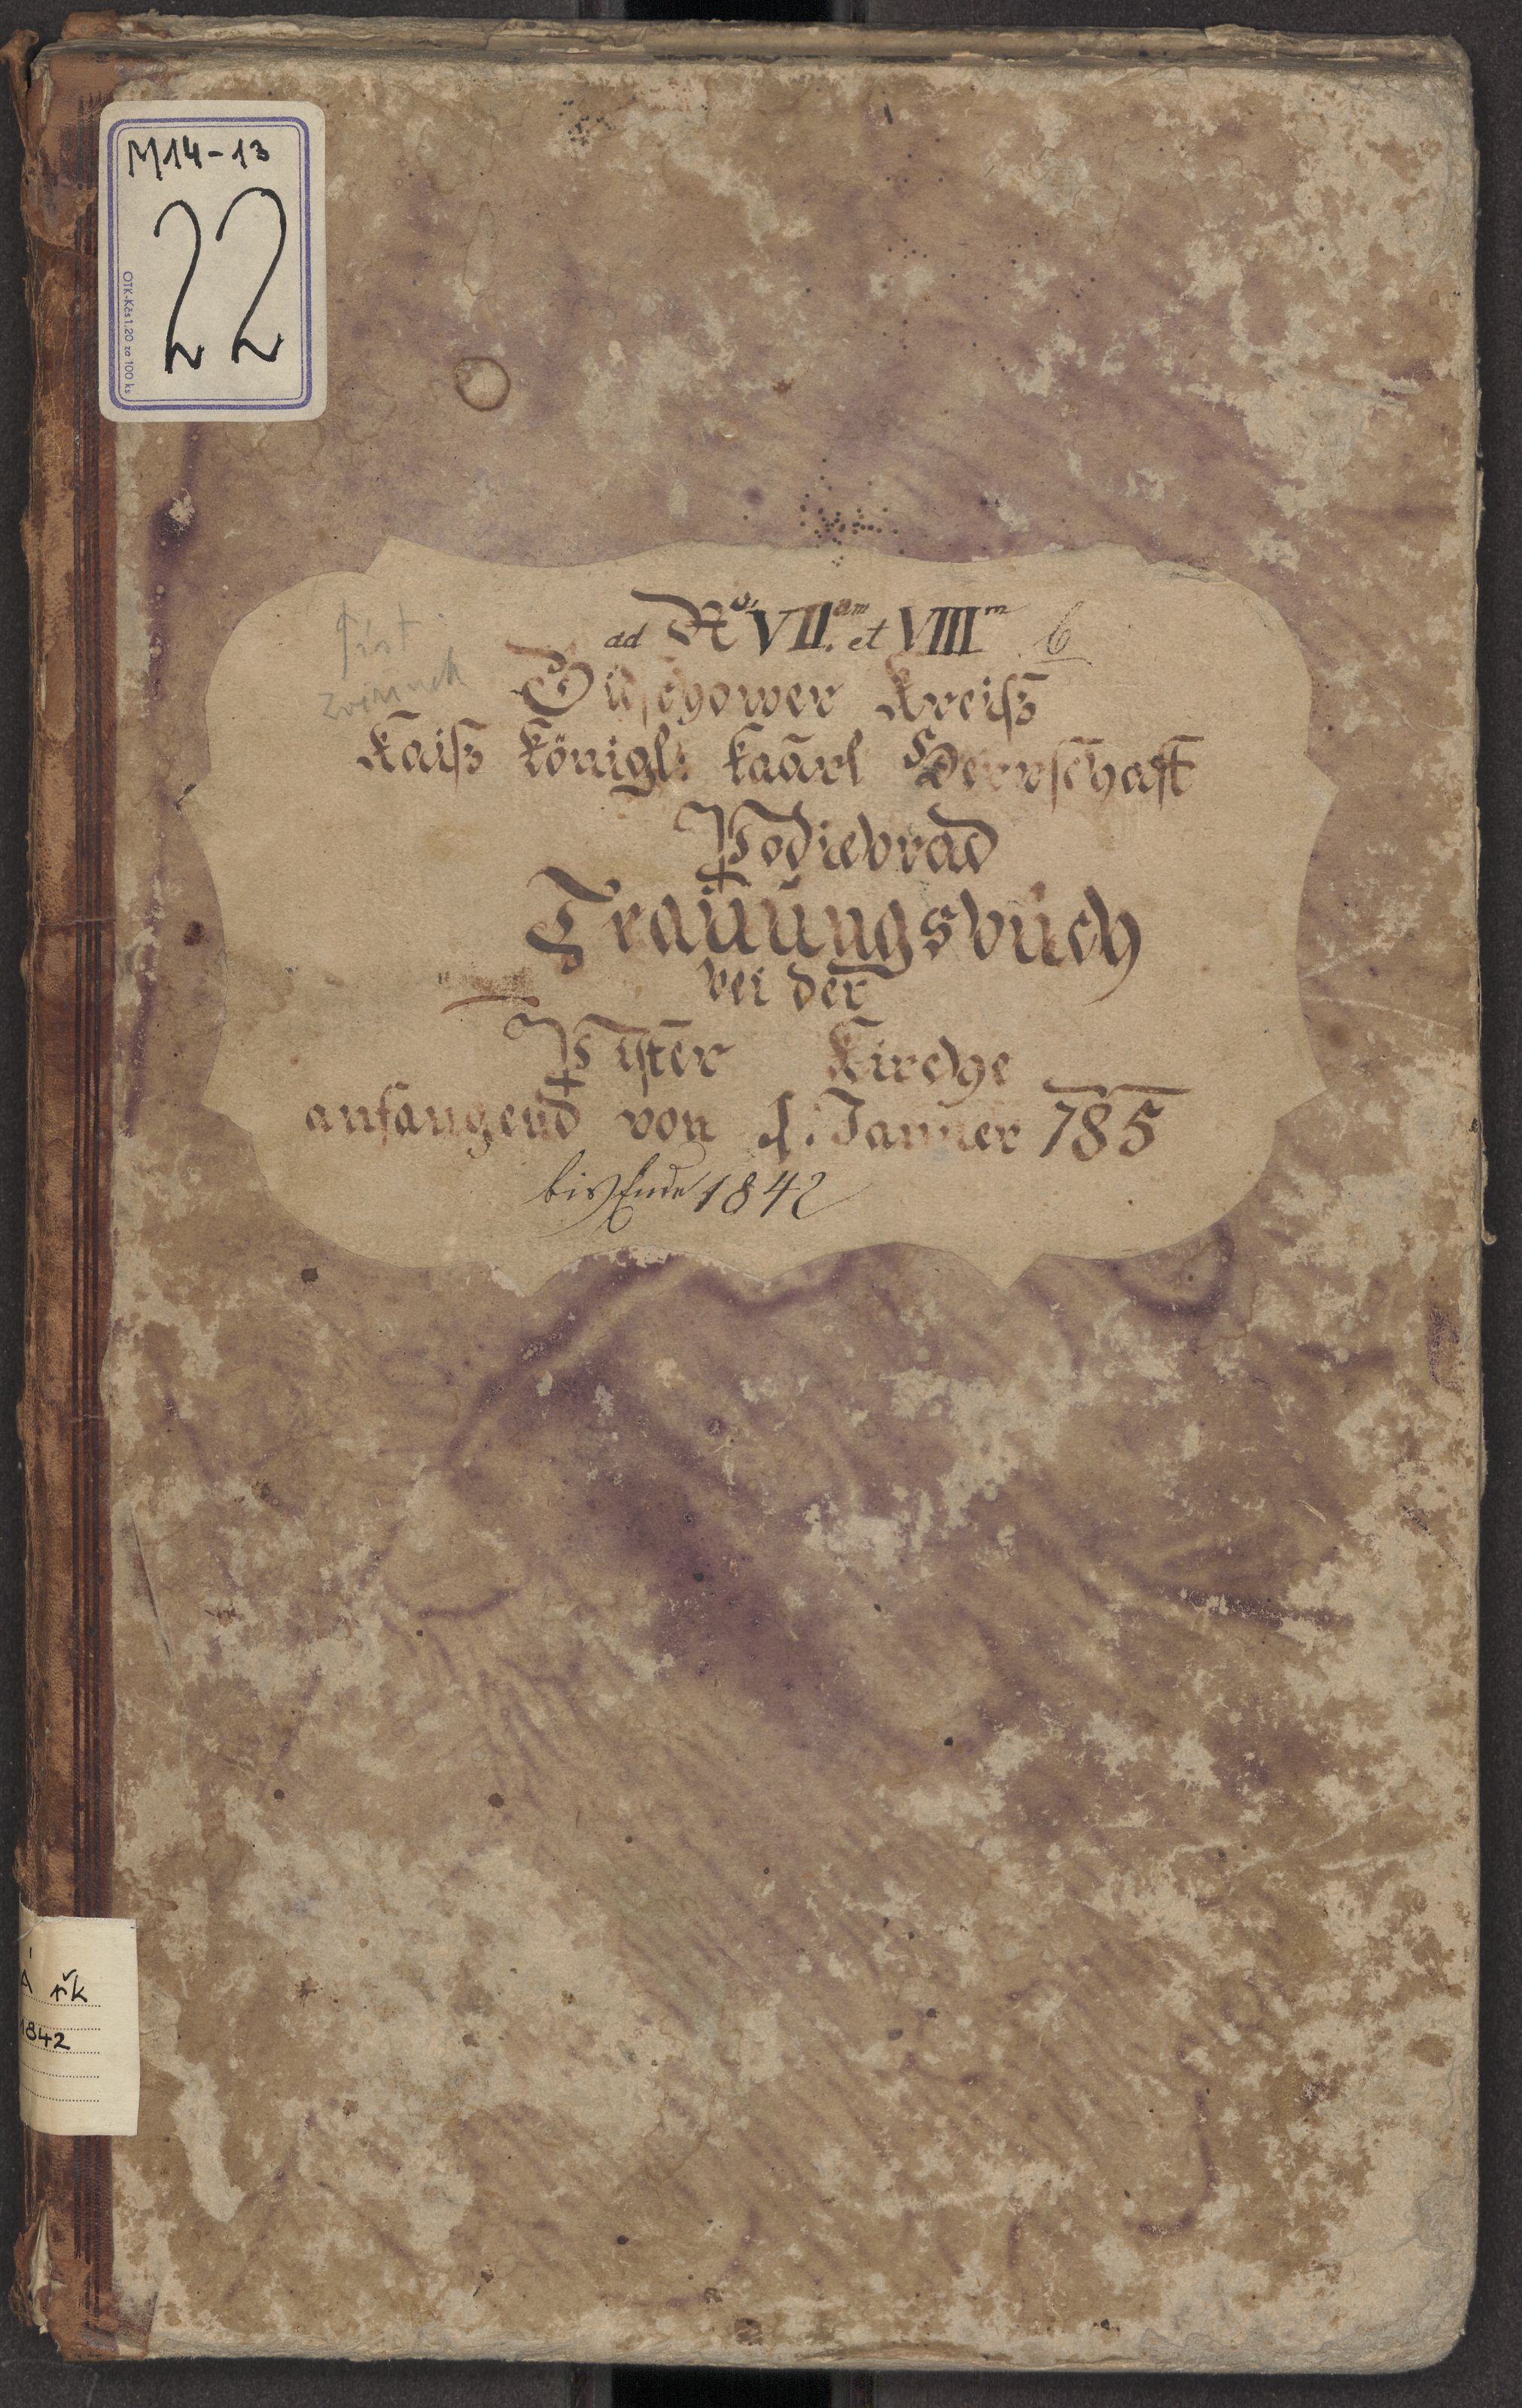 M14-13
22
OTK-Kčs 1.20 za 100 ks
Píst
ad Nº VII.am et VIIIm 6
Bitschower Kreiß
Kaiß Königl: Kaarl Herrschaft
Podiebrad
Trauungsbuch
bei der
Pister Kirche
anfangend von 1. Januer 785
bis Ende 1842
A řk
1842